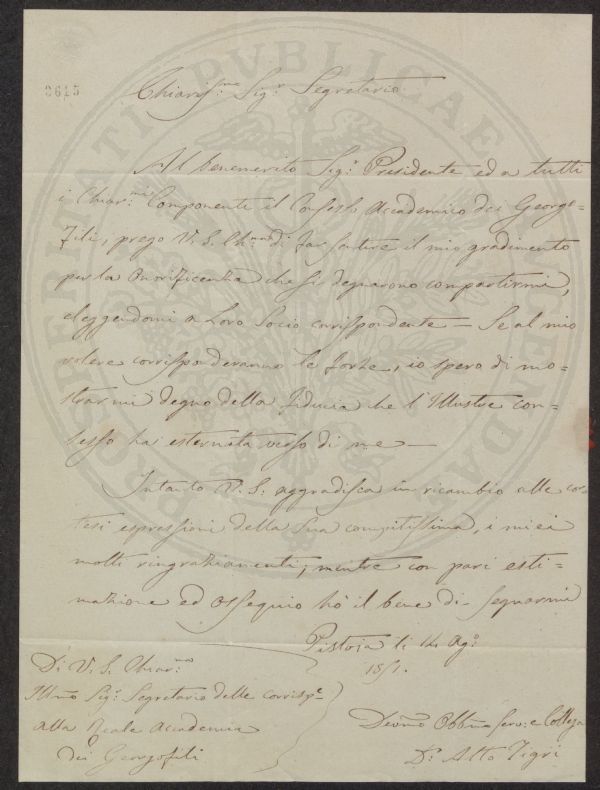 PROSPERITATI PVBLICAE AVGENDAE
0615
Chiariss.mo Sig.r Segretario
Al benemerito Sig.r Presidente ed a tutti
i Chiar.mi Componenti il Consesso Accademico dei Georgo=
fili, prego V. S. Ch.ma di far sentire il mio gradimento
per la Onorificenza che si degnarono compartirmi,
eleggendomi a Loro Socio corrispondente — Se al mio
volere corrisponderanno le forze, io spero di mo=
strarmi degno della fiducia che l'Illustre con=
sesso ha esternata verso di me —
Intanto V. S. aggradisca in ricambio alle cor=
tesi espressioni della Sua compitissima, i miei
molti ringraziamenti; mentre con pari esti=
mazione ed ossequio hò il bene di segnarmi
Pistoia li 14 Ag.o
1851.
Di V. S. Chiar.ma
Illmo Sig.r Segretario delle corrisp.e
alla Reale Accademia
dei Georgofili
Devmo Obbmo Serv. e Collega
D.r Atto Tigri